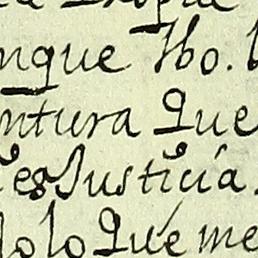 nque Ho. l
ntura Que
es Justicia.
solo Que me